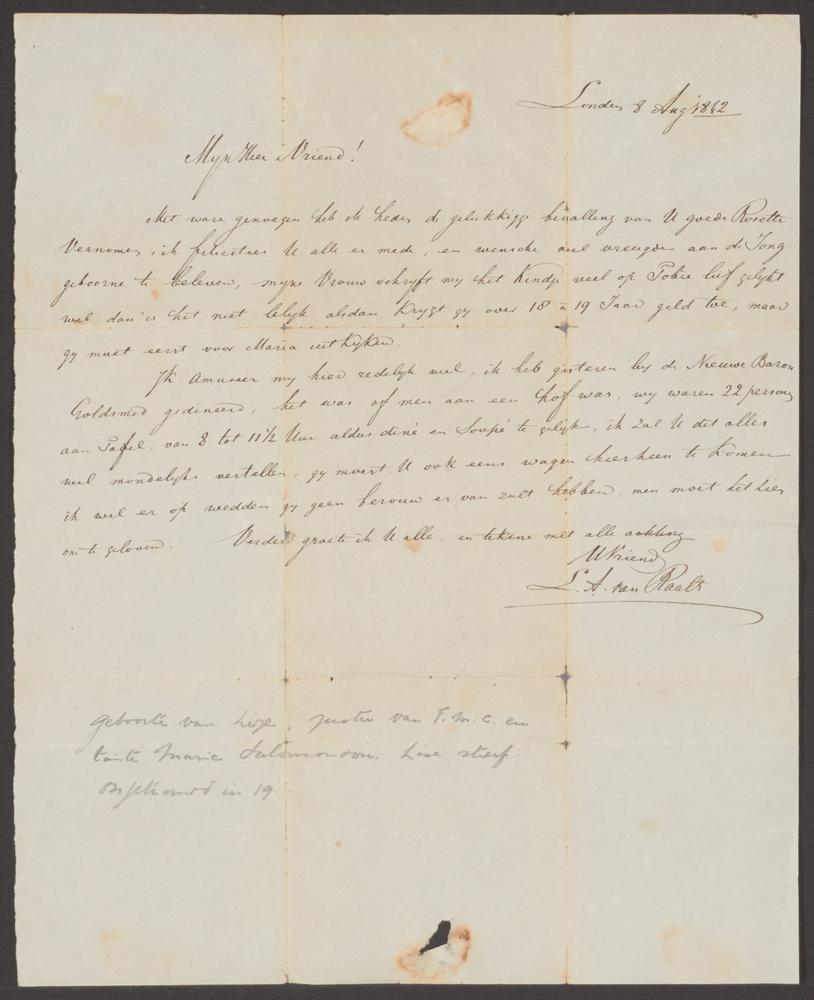 London 8 Aug 1862
Myn Heer & Vriend!
Met ware genoegen heb ik heden de gelukkige bevalling van U goede Rosette
Vernomen, ik feliciteer U alle er mede, en wensche veel vreugde aan de Jong
geboorne te beleven, myne Vrouw schryft my het Kindje veel op Tobie lief gelykt
wel dan is het niet lelyk alsdan Krygt gy over 18 a 19 Jaar geld toe, maar
gy moet eerst voor Maria uitkyken.
Ik Amuseer my hier redelyk wel, ik heb gisteren by de Nieuwe Baron
Goldsmid gedineerd, het was of men aan een hof was, wy waren 22 persons
aan Tafel, van 8 tot 11½ Uur aldus diné en Soupé te gelyk, ik zal U dit alles
wel mondelyks vertellen, gy moest U ook eens wagen hierheen te komen
ik wil er op wedden gy geen berouw er van zult hebben, men moet het zien
om te geloven. Verders groete ik U alle, en tekene met alle achting
UVriend
L. A. van Raalt
geboorte van Lize, zuster van T.M.C. en
tante Marie Salomonson. Lize stierf
in 19